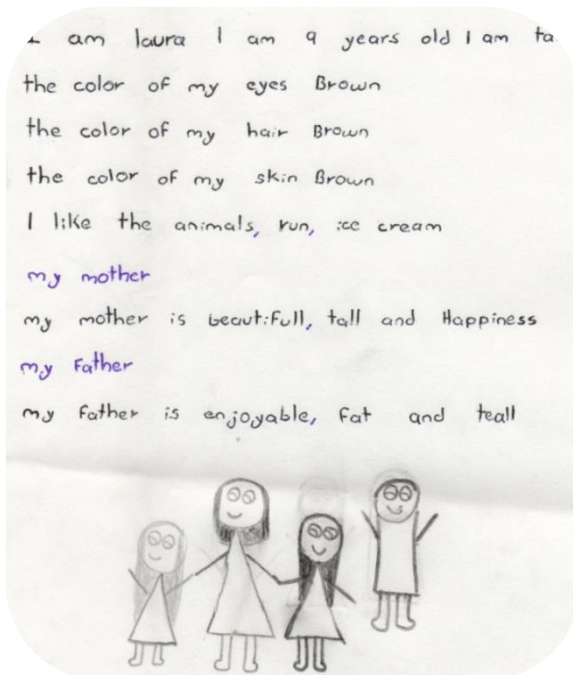 I am laura I am 9 years old I am ta
the color of my eyes Brown
the color of my hair Brown
the color of my skin Brown
I like the animals, run, ice cream
my mother
my mother is beautifull, tall and Happiness
my Father
my father is enjoyable, Fat and teall